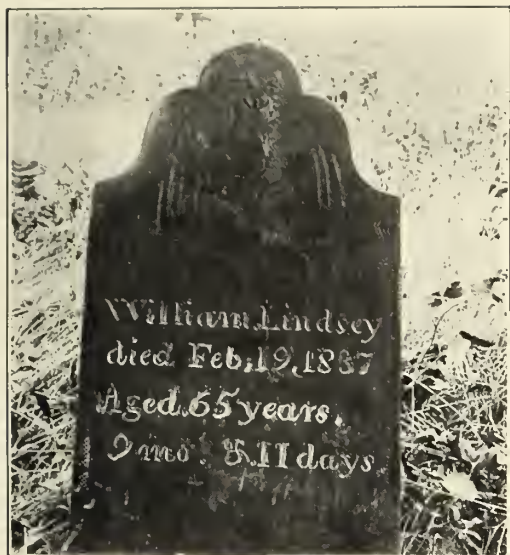 William Lindsey
died Feb. 19, 1887
Aged 65 years,
9 mo & 11 days